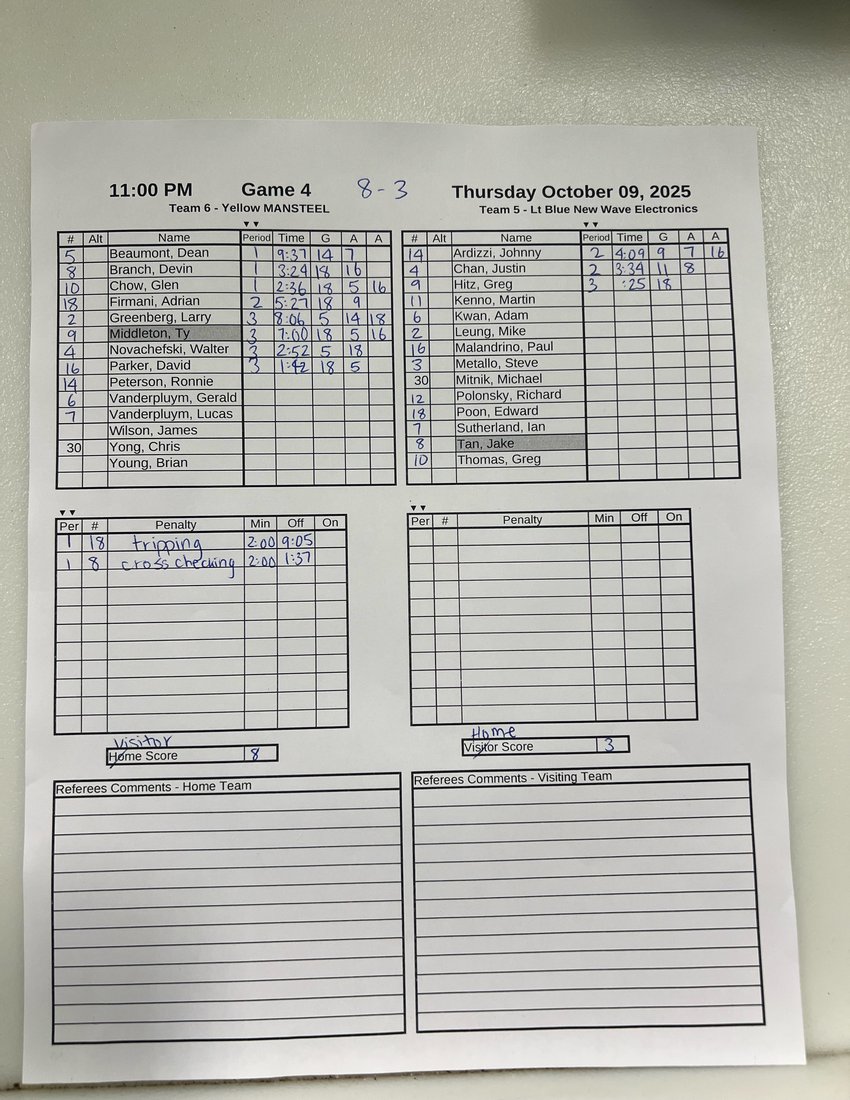 11:00 PM Game 4 8-3 Thursday October 09, 2025
Team 6 - Yellow MANSTEEL Team 5 - Lt Blue New Wave Electronics
# Alt Name Period Time G A A # Alt Name Period Time G A A
5 Beaumont, Dean 1 9:37 14 7 14 Ardizzi, Johnny 2 4:09 9 7 16
8 Branch, Devin 1 3:24 18 16 4 Chan, Justin 2 3:34 11 8
10 Chow, Glen 1 2:36 18 5 16 9 Hitz, Greg 3 :25 18
18 Firmani, Adrian 2 5:27 18 9 11 Kenno, Martin
2 Greenberg, Larry 3 8:06 5 14 18 6 Kwan, Adam
9 Middleton, Ty 3 7:00 18 5 16 2 Leung, Mike
4 Novachefski, Walter 3 2:52 5 18 16 Malandrino, Paul
16 Parker, David 3 1:42 18 5 3 Metallo, Steve
14 Peterson, Ronnie 30 Mitnik, Michael
6 Vanderpluym, Gerald 12 Polonsky, Richard
7 Vanderpluym, Lucas 18 Poon, Edward
Wilson, James 7 Sutherland, Ian
30 Yong, Chris 8 Tan, Jake
Young, Brian 10 Thomas, Greg
Per # Penalty Min Off On Per # Penalty Min Off On
1 18 tripping 2:00 9:05
1 8 cross checking 2:00 1:37
Visitor Home
Home Score 8 Visitor Score 3
Referees Comments - Home Team Referees Comments - Visiting Team